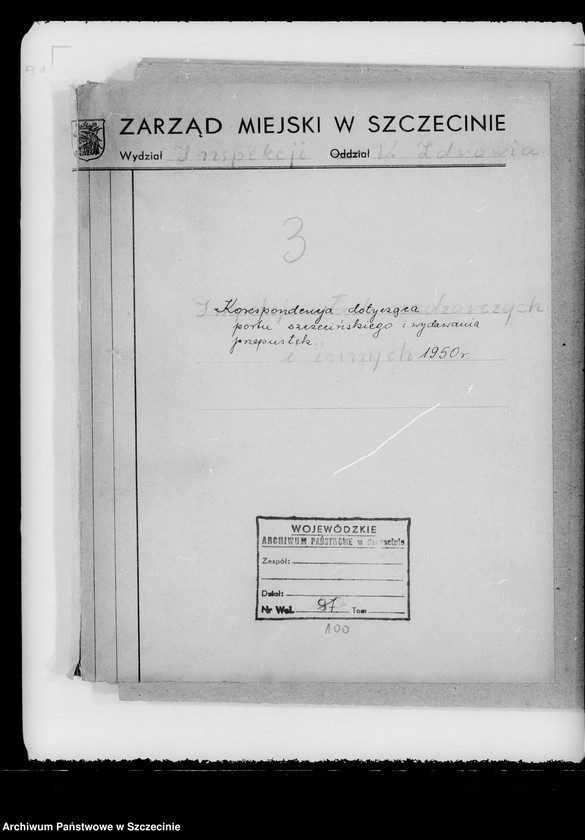 ZARZĄD MIEJSKI W SZCZECINIE
Wydział Inspekcji Oddział V. Zdrowia
3
Korespondencja dotycząca
portu szczecińskiego i wydawania
przepustek.
i innych 1950 r.
WOJEWÓDZKIE
ARCHIWUM PAŃSTWOWE w Szczecinie
Zespół:
Dział:
Nr Wol. 97 Tom
100
Archiwum Państwowe w Szczecinie